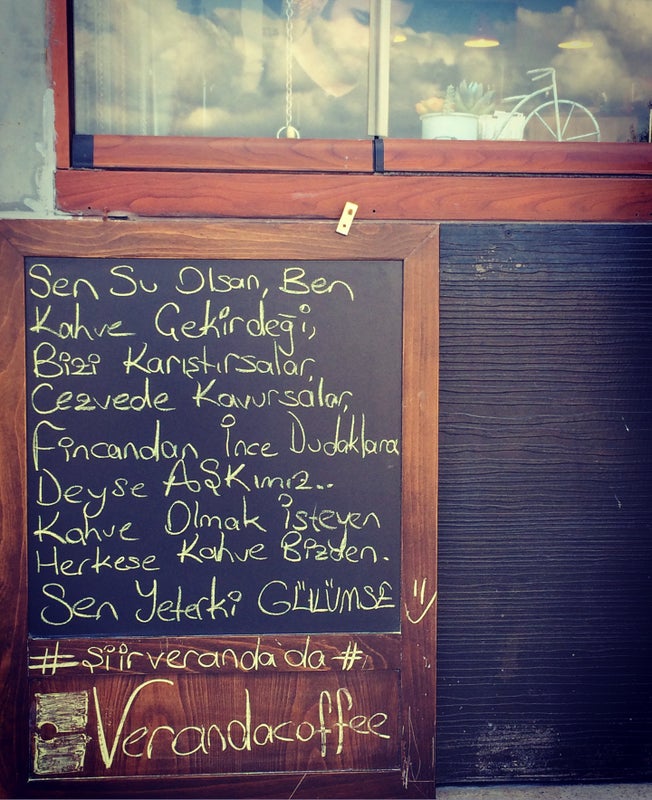 Sen Su Olsan, Ben
Kahve Çekirdeği,
Bizi Karıştırsalar,
Cezvede Kavursalar,
Fincandan İnce Dudaklara
Deyse AŞKımız..
Kahve Olmak İsteyen
Herkese Kahve Bizden.
Sen Yeterki GÜLÜMSE
#şiirveranda'da#
Verandacoffee